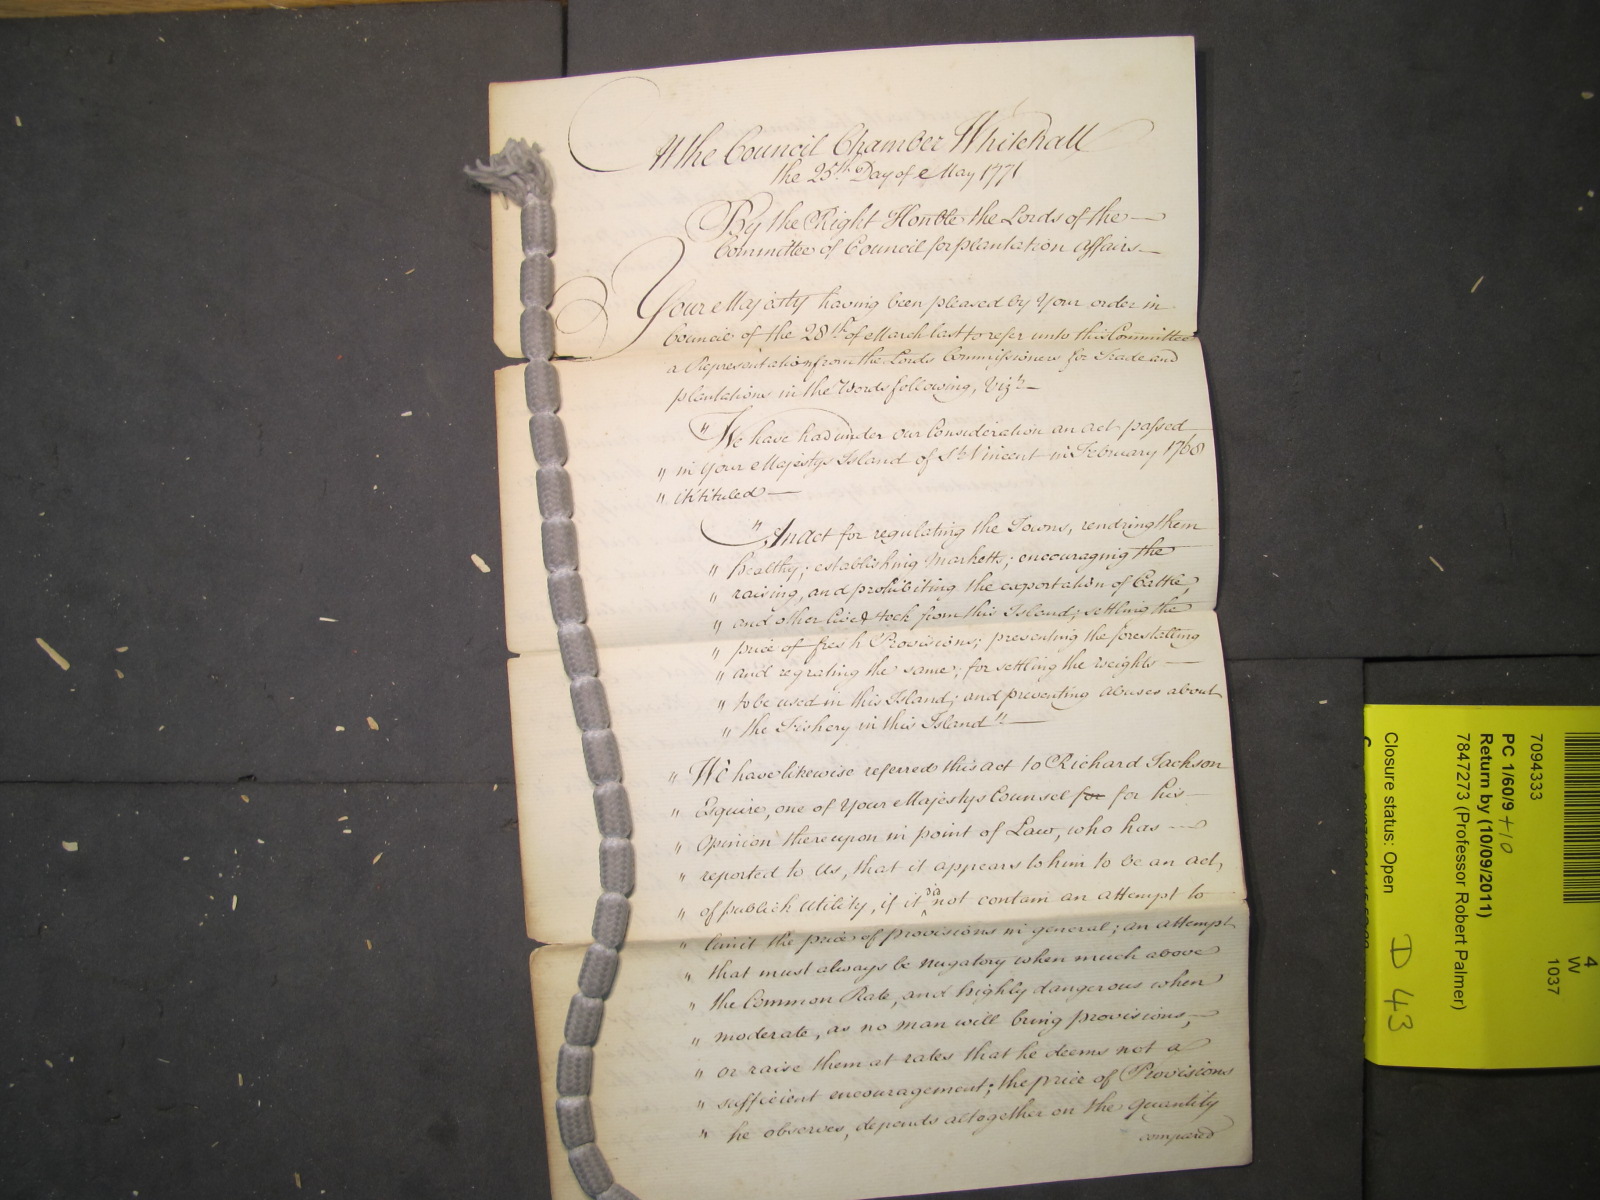 At the Council Chamber Whitehall
the 25th. Day of May 1771
By the Right Honble the Lords of the —
Committee of Council for plantation affairs —
Your Majesty having been pleased by Your order in
Council of the 28th of March last to refer unto this Committee
a Representation from the Lords Commissioners for Trade and
plantations in the Words following, Vizt. —
" We have had under our Consideration an act passed
" in Your Majestys Island of St Vincent in February 1768
" intituled —
" An Act for regulating the Towns, rendring them
" healthy; establishing marketts; encouraging the
" raising, and prohibiting the exportation of Cattle,
" and other live Stock from this Island; settling the
" price of fresh Provisions; preventing the forestalling
" and regrating the same; for settling the weights —
" to be used in this Island; and preventing abuses about
" the Fishery in this Island" —
" We have likewise referred this act to Richard Jackson
" Esquire, one of Your Majestys Counsel for for his —
" Opinion thereupon in point of Law, who has —
" reported to Us, that it appears to him to be an act,
" of publick Utility, if it did not contain an attempt to
" limit the price of provisions in general; an attempt
" that must always be nugatory when much above
" the Common Rate, and highly dangerous when
" moderate, as no man will bring provisions, —
" or raise them at rates that he deems not a
" sufficient encouragement; the price of Provisions
" he observes, depends altogether on the quantity
compared
7094333
PC 1/60/9 +10
Return by (10/09/2011)
7847273 (Professor Robert Palmer)
Closure status: Open
4
W
1037
D 43